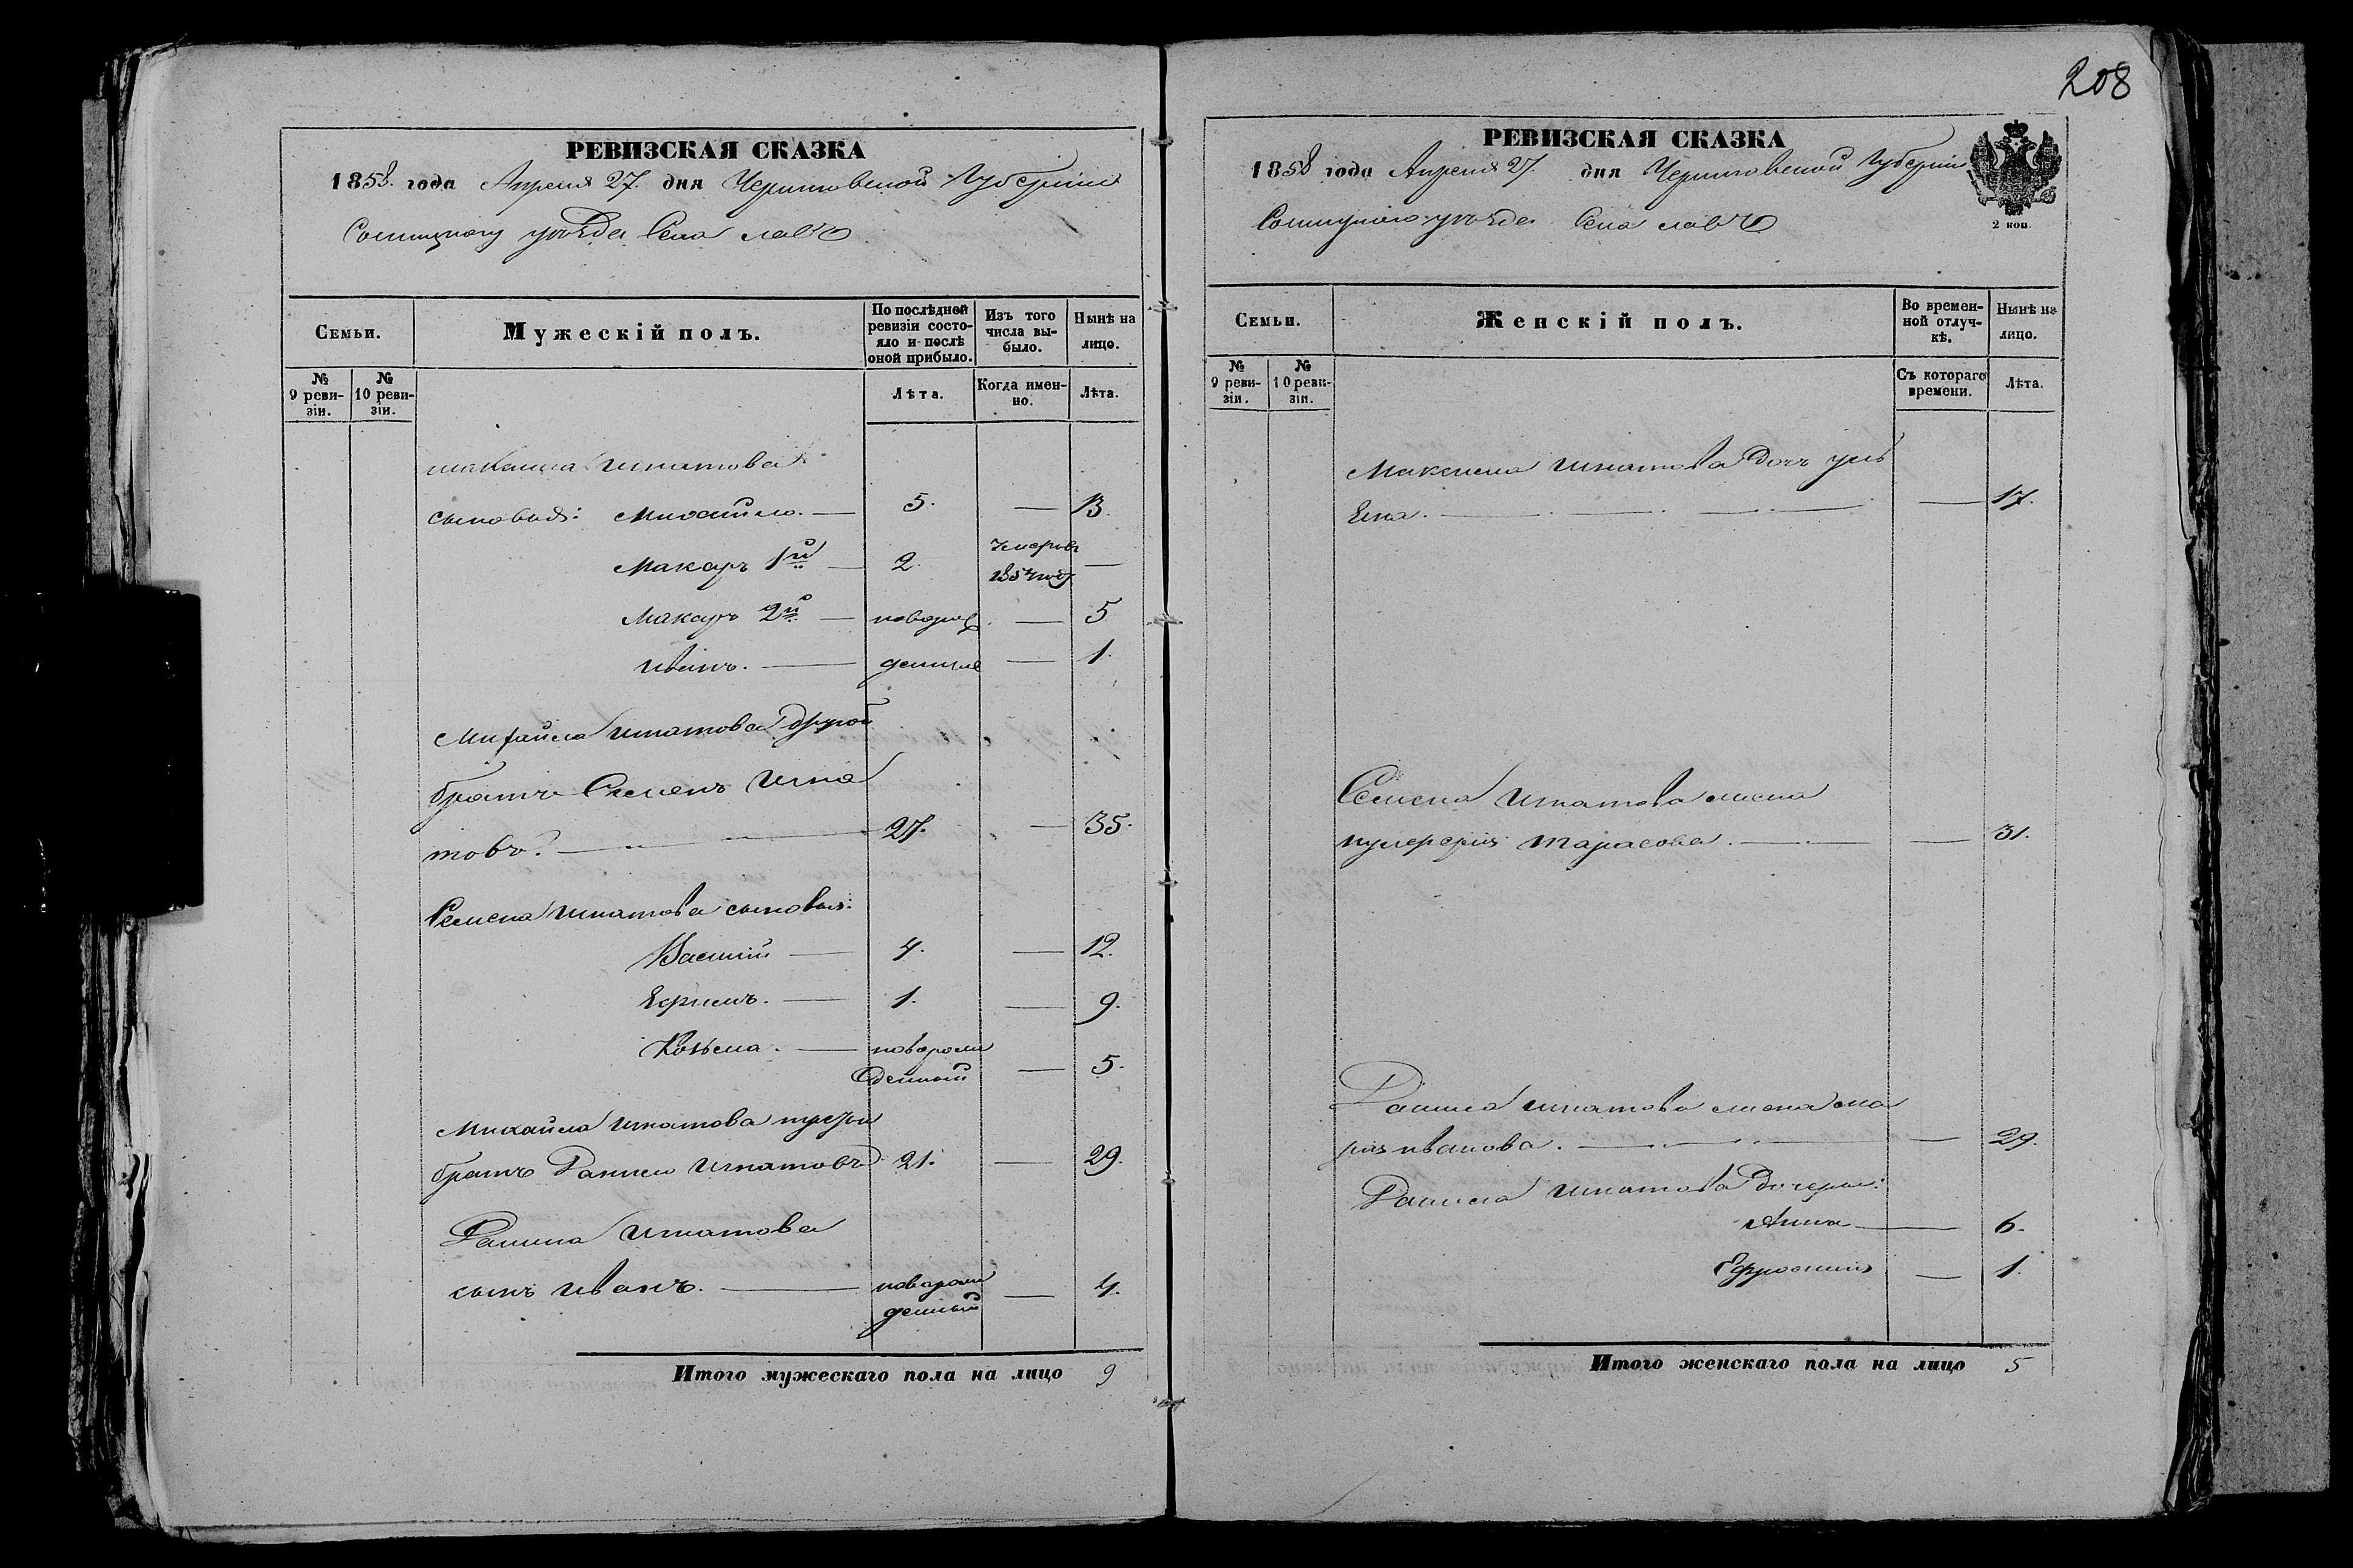 208
РЕВИЗСКАЯ СКАЗКА
1858. года Апреля 27. дня Черниговской Губерніи
Сосницкого уѣзда Села
Семьи.
Мужескій полъ.
По послѣдней ревизіи состояло и послѣ оной прибыло.
Изъ того числа выбыло.
Нынѣ на лицо.
№ 9 ревизіи.
№ 10 ревизіи.
Лѣта.
Когда именно.
Лѣта.
Максима Игнатова
сыновья: Михайло. — 5. — 13.
Макаръ 1й — 2. умеръ 1854 году —
Макаръ 2й — новорож — 5
Иванъ. — денные — 1.
Михайла Игнатова другой
братъ Семенъ Игна
товъ. — 27. — 35.
Семена Игнатова сыновья:
Василій — 4. — 12.
Ефимъ. — 1. — 9.
Козьма. — новорож
денный — 5.
Михайла Игнатова третій
братъ Данило Игнатовъ 21. — 29.
Данила Игнатова
сынъ Иванъ. — новорож
денный — 4.
Итого мужескаго пола на лицо 9
РЕВИЗСКАЯ СКАЗКА
1858 года Апреля 27. дня Черниговской Губерніи
Сосницкого уѣзда Села
2 коп.
Семьи.
Женскій полъ.
Во временной отлучкѣ.
Нынѣ на лицо.
№ 9 ревизіи.
№ 10 ревизіи.
Съ котораго времени.
Лѣта.
Максима Игнатова дочь Уль
яна. — — 17.
Семена Игнатова жена
Пульферія Тарасова. — — 31.
Данила Игнатова жена Ма
рія Иванова. — — 29.
Данила Игнатова дочери:
Анна — 6.
Ефросинія — 1.
Итого женскаго пола на лицо 5